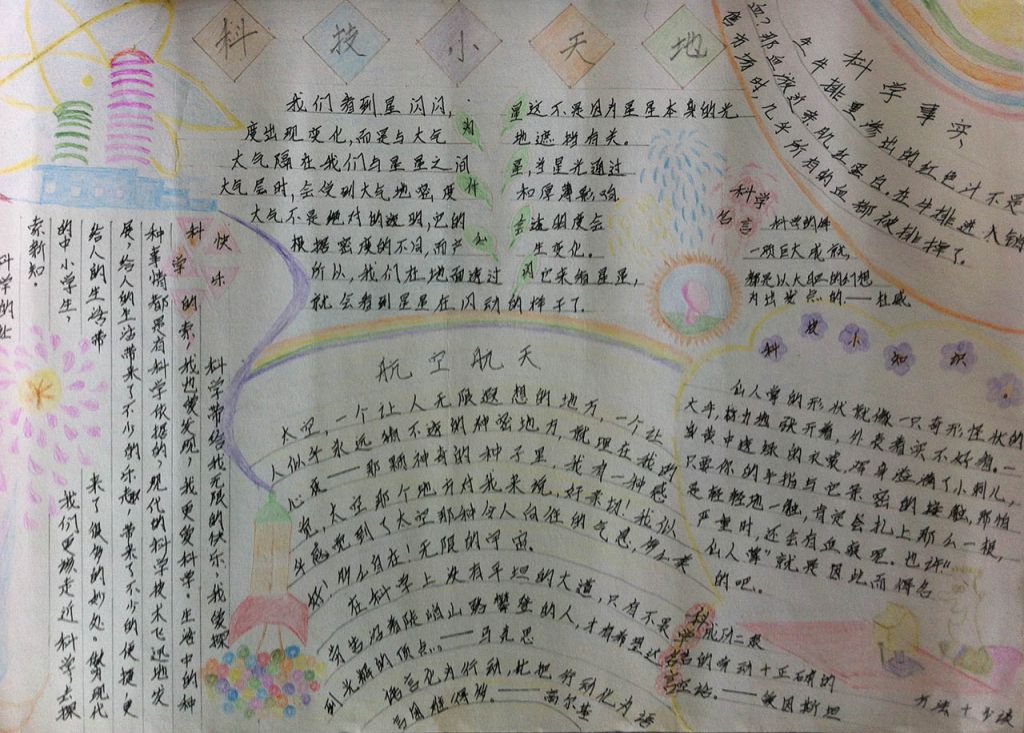 科技小天地
我们看到星闪闪,
星这不是因为星星本身的光
度出现变化,而是与大气
地遮挡有关。
大气隔在我们与星星之间
星,当星光通过
大气层时,会受到大气地密度
和厚薄影响
大气不是绝对的透明,它的
去透明度会
根据密度的不同,而产
生变化。
所以,我们在地面透过
它来看星星,
就会看到星星在闪动的样子了。
科学事实
生牛排里渗出的红色汁不是
血?那血液过来肌红蛋白。在牛排进入
售前有时几乎所有的血都被排掉了。
科学
名言
科学的每
一项巨大成就,
都是以大胆的幻想
为出发点的.——杜威
快乐
科学
科学带给我无限的快乐,我爱探
的索,我也爱发现,我更爱科学。生活中的种
种事情都是有科学依据的,现代的科学技术飞速地发
展,给人的生活带来了不少的乐趣,带来了不少的便捷,更
给人的生活带
来了很多的妙处。做为现代
的中小学生,
我们更场走近科学去探
索新知。
航空航天
太空,一个让人无限遐想的地方,一个让
人似乎永远猜不透的神密地方,就埋在我的
心灵——那颗神奇的种子里,我有一种感
觉,太空那个地方对我来说,好亲切!我似
乎感觉到了太空那种令人向往的气息,那么美
妙!那么自在!无限的宇宙。
在科学上没有平坦的大道,只有不畏
劳苦沿着陡峭山路攀登的人,才有希望达
到光辉的顶点。——马克思
——高尔基
科技小知识。
仙人掌的形状就像一只奇形怪状的
大手,努力地张开着,外表看实不好看。一
当黄中透绿的衣裳,浑身脸满了小刺儿,
只要你的手指与它亲密的接触,那怕
是轻轻地一触,肯定会扎上那么一根,
严重时,还会有血痕呢。也许“
仙人掌”就是因此而得名
的吧。
科学名言
成功二艰
的劳动+正确的
方法+少谈
空话。——爱因斯坦